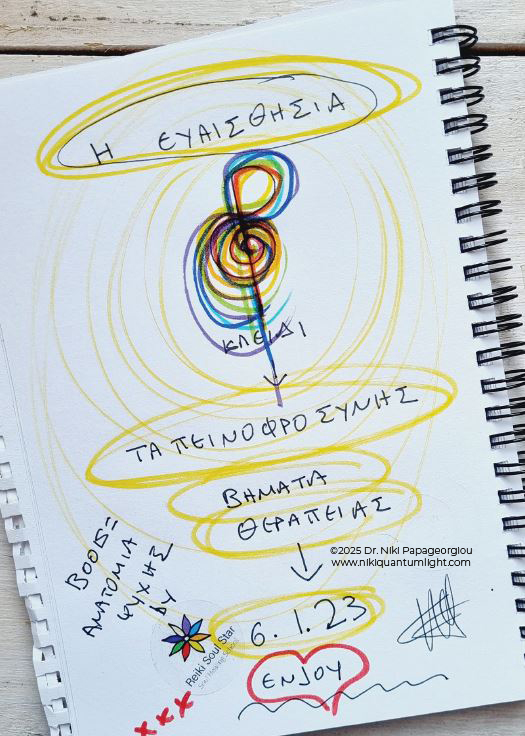 Η ΕΥΑΙΣΘΗΣΙΑ
ΚΛΕΙΔΙ
ΤΑΠΕΙΝΟΦΡΟΣΥΝΗΣ
ΒΗΜΑΤΑ
ΘΕΡΑΠΕΙΑΣ
©2025 Dr. Niki Papageorgiou
www.nikiquantumlight.com
ΑΝΑΤΟΜΙΑ
ΨΥΧΗΣ
Reiki Soul Star
6.1.23
ENJOY
xxx